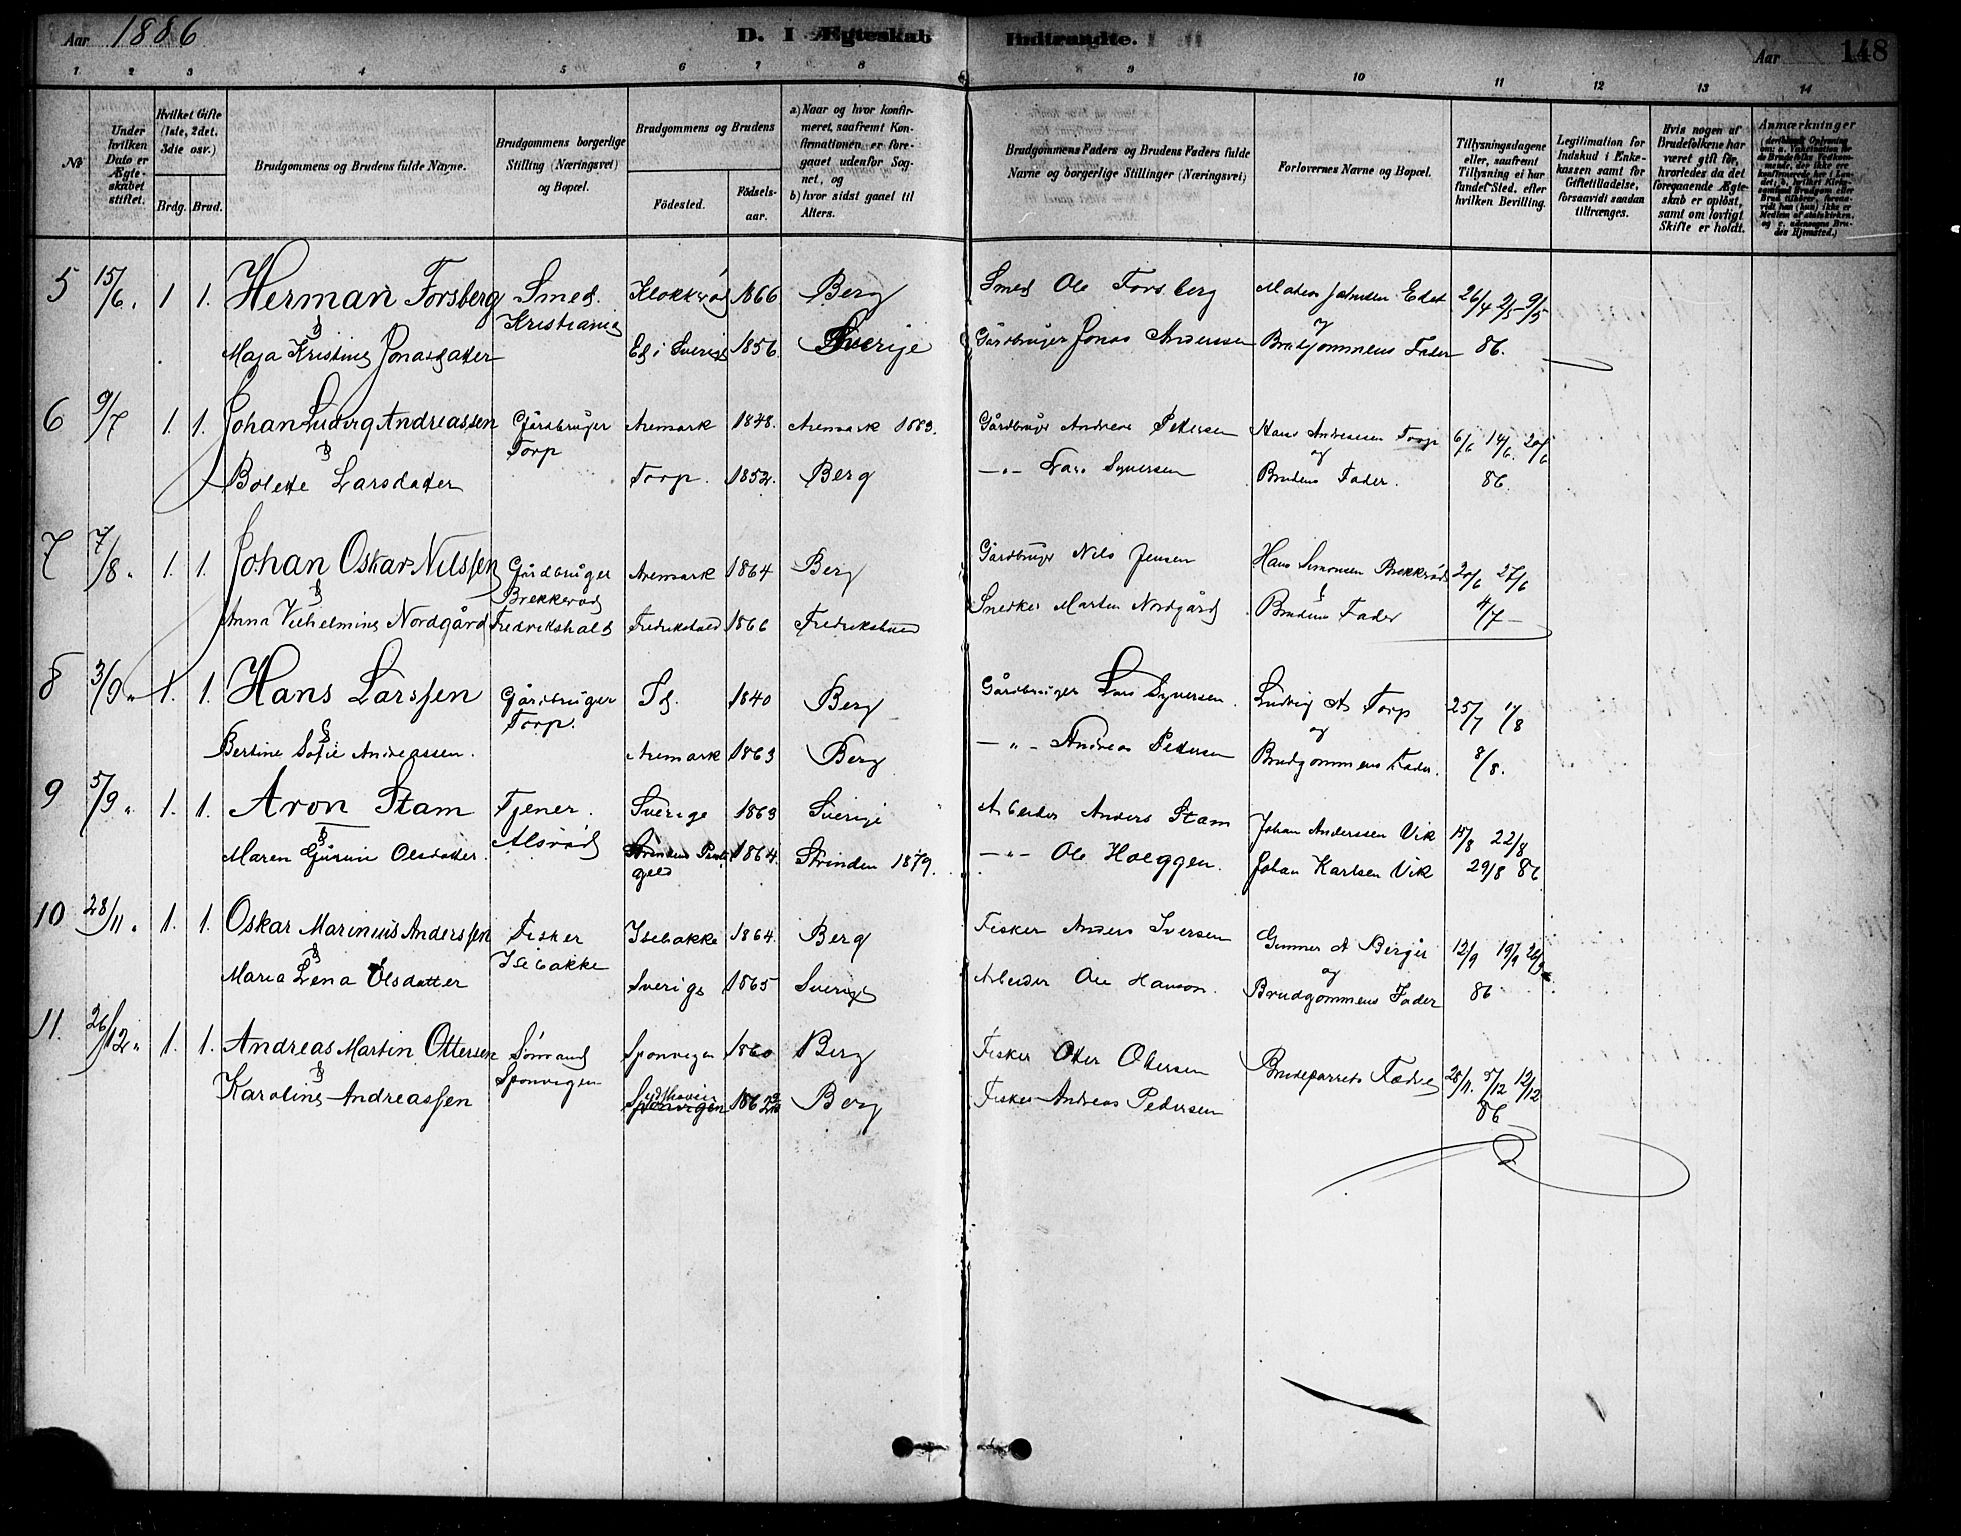 Aar 1886
D. I Ægteskab Indtraadte.
Aar
148
1 2 3 4 5 6 7 8 9 10 11 12 13 14
No
Under hvilken Dato er Ægteskabet stiftet.
Hvilket Gifte (1ste, 2det, 3die osv.)
Brdg. Brud.
Brudgommens og Brudens fulde Navne.
Brudgommens borgerlige Stilling (Næringsvei) og Bopæl.
Brudgommens og Brudens
Födested. Födselsaar.
a) Naar og hvor konfirmeret, saafremt Konfirmationen er foregaaet udenfor Sognet, og
b) hvor sidst gaaet til Alters.
Brudgommens Faders og Brudens Faders fulde Navne og borgerlige Stillinger (Næringsvei)
Forlovernes Navne og Bopæl.
Tillysningsdagene eller, saafremt Tillysning ei har fundet Sted, efter hvilken Bevilling.
Legitimation for Indskud i Enkekassen samt for Giftetilladelse, forsaavidt saadan tiltrænges.
Hvis nogen af Brudefolkene har været gift för, hvorledes da det foregaaende Ægteskab er oplöst, samt om lovligt Skifte er holdt.
Anmærkninger
5 15/6. 1 1. Herman Forsberg Smed. Kristiania Klokkrød 1866 Berg Smed Ole Forsberg Edet 26/4 2/5 9/5
& Maja Kristine Jonasdatter Ed i Sverige 1856 Sverije Gårdbruger Jonas Anderssen og Brudgommens Fader 86.
6 9/7 1. 1. Johan Ludvig Andreassen Gårdbruger Torp Aremark 1848. Aremark 1863. Gårdbruger Andreas Petersen Hans Andreassen Torp 6/6 14/6. 20/6
& Bolette Larsdatter Torp. 1852. Berg —"— Lars Syversen og Brudens Fader. 86.
7 7/8. 1. 1. Johan Oskar Nilssen Gårdbruger Brekkerød Aremark 1864 Berg Gårdbruger Nils Jensen Hans Simonsen Brekkrød 20/6 27/6
& Anna Vilhelmine Nordgård Fredrikshald Fredrikshald 1866 Fredrikshald Snedker Martin Nordgård & Brudens Fader 4/7 —
8 3/9. 1. 1. Hans Larssen Gårdbruger Torp. Id. 1840 Berg Gårdbruger Lars Syversen. Ludvig A Torp 25/7 1/8
& Bertine Sofie Andreassen. Aremark 1863 Berg —"— Andreas Petersen og Brudgommens Fader. 8/8.
9 5/9. 1. 1. Aron Stam Tjener. Alsrød Sverige 1863 Sverije Arbeider Anders Stam Johan Anderssen Vik 15/8 22/8
& Maren Gurine Olsdatter. Strindens Præstegeld 1864. Strinden 1879. —"— Ole Hoeggen. Johan Karlsen Vik 29/8 86
10 28/11. 1. 1. Oskar Marinius Anderssen Fisker Isebakke Isebakke 1864. Berg Fisker Anders Iversen Gunner A Berger 12/9 19/9 26/9
& Maria Lena Olsdatter Sverige 1865 Sverige Arbeider Ole Hanson. og Brudgommens Fader 86
11. 26/12. 1. 1. Andreas Martin Ottersen Sømand Sponvigen Sponvigen 1860 Berg Fisker Otter Ottersen Brudeparrets Fædre 28/11. 5/12 12/12
& Karoline Andreassen Sponvigen Berg Fisker Andreas Pedersen 86